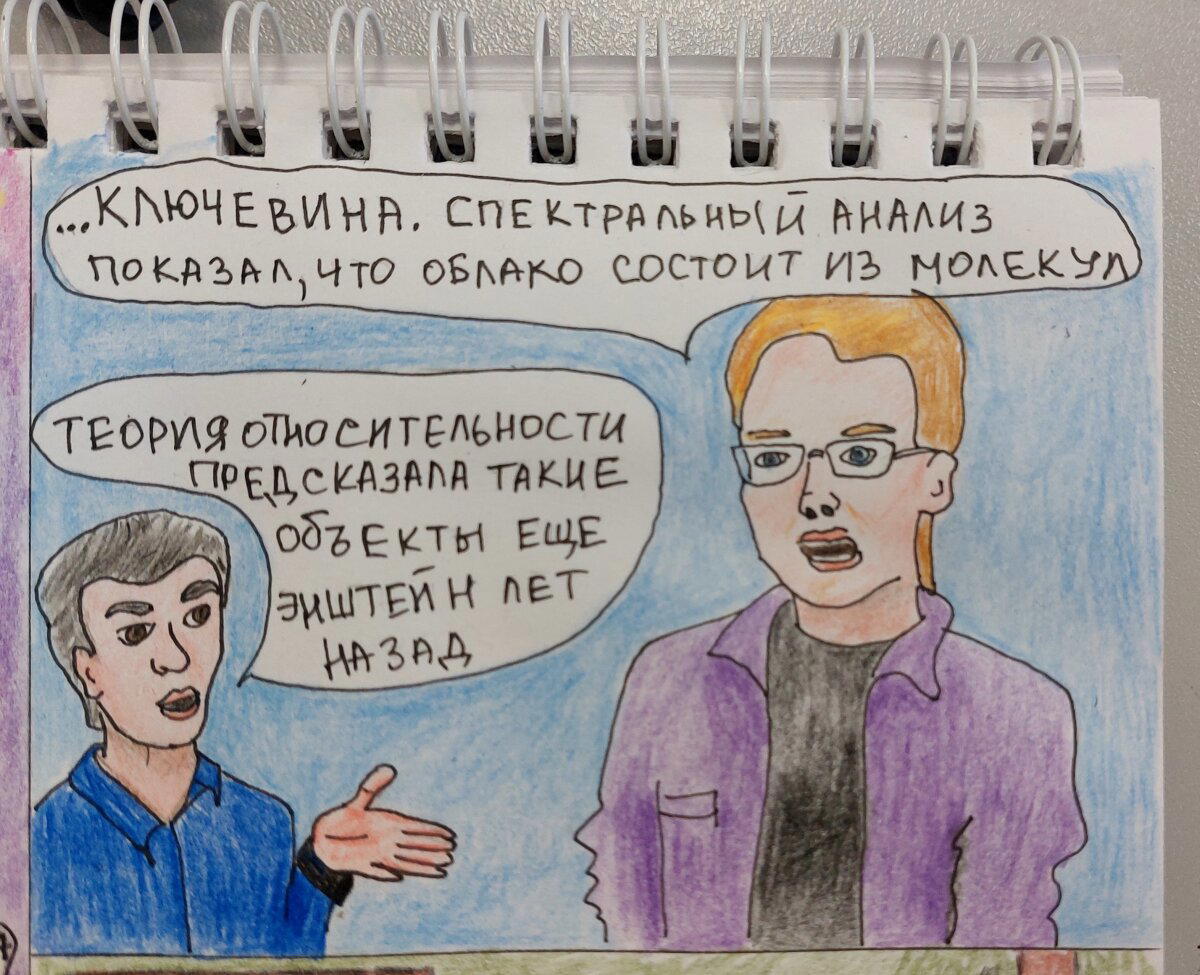 ...КЛЮЧЕВИНА. СПЕКТРАЛЬНЫЙ АНАЛИЗ
ПОКАЗАЛ, ЧТО ОБЛАКО СОСТОИТ ИЗ МОЛЕКУЛ
ТЕОРИЯ ОТНОСИТЕЛЬНОСТИ
ПРЕДСКАЗАЛА ТАКИЕ
ОБЪЕКТЫ ЕЩЕ
ЭНШТЕЙН ЛЕТ
НАЗАД